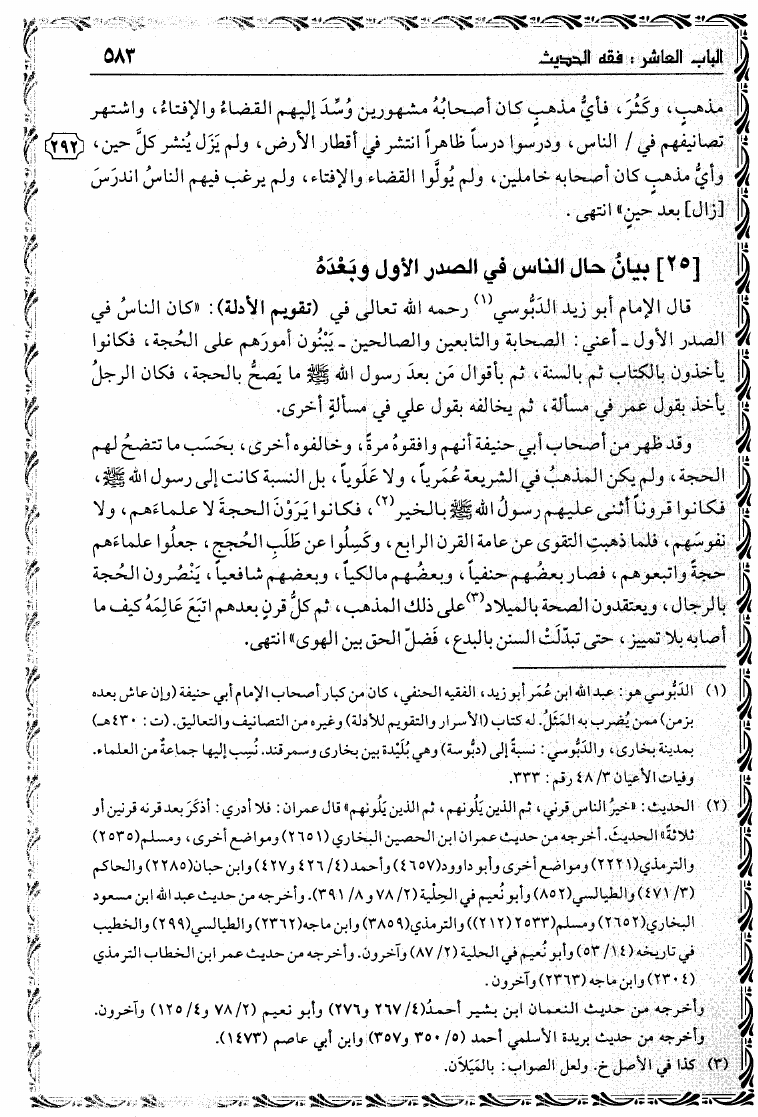 الباب العاشر : فقه الحديث
٥٨٣
مذهبٍ، وكَثُرَ، فأيُّ مذهبٍ كان أصحابُهُ مشهورين وُسِّدَ إليهم القضاءُ والإفتاءُ، واشتهر
تصانيفهم في / الناس، ودرسوا درساً ظاهراً انتشر في أقطار الأرض، ولم يَزَل يُنشر كلَّ حين،
٢٩٢
وأيُّ مذهبٍ كان أصحابه خاملين، ولم يُولَّوا القضاء والإفتاء، ولم يرغب فيهم الناسُ اندرَسَ
[زال] بعد حينٍ» انتهى.
[٢٥] بيانُ حال الناس في الصدر الأول وبَعْدَهُ
قال الإمام أبو زيد الدَبُّوسي(١) رحمه الله تعالى في (تقويم الأدلة): «كان الناسُ في
الصدر الأول ـ أعني: الصحابة والتابعين والصالحين ـ يَبْنُون أمورَهم على الحُجة، فكانوا
يأخذون بالكتاب ثم بالسنة، ثم بأقوال مَن بعدَ رسول الله ﷺ ما يَصحُّ بالحجة، فكان الرجلُ
يأخذ بقول عمر في مسألة، ثم يخالفه بقول علي في مسألةٍ أخرى.
وقد ظهر من أصحاب أبي حنيفة أنهم وافقوهُ مرةً، وخالفوه أخرى، بحَسَب ما تتضحُ لهم
الحجة، ولم يكن المذهبُ في الشريعة عُمَرياً، ولا عَلَوياً، بل النسبة كانت إلى رسول الله ﷺ،
فكانوا قروناً أثنى عليهم رسولُ الله ﷺ بالخير(٢)، فكانوا يَرَوْنَ الحجةَ لا علماءَهم، ولا
نفوسَهم، فلما ذهبتِ التقوى عن عامة القرن الرابع، وكَسِلُوا عن طَلَبِ الحُججِ، جعلُوا علماءَهم
حجةً واتبعوهم، فصار بعضُهم حنفياً، وبعضُهم مالكياً، وبعضهم شافعياً، يَنْصُرون الحُجة
بالرجال، ويعتقدون الصحة بالميلاد(٣) على ذلك المذهب، ثم كلُّ قرنٍ بعدهم اتبَعَ عَالِمَهُ كيف ما
أصابه بلا تمييز، حتى تبدّلَتْ السنن بالبدع، فَضلّ الحق بين الهوى» انتهى.
(١) الدَبُّوسي هو: عبدالله ابن عُمَر أبو زيد، الفقيه الحنفي، كان من كبار أصحاب الإمام أبي حنيفة (وإن عاش بعده
بزمن) ممن يُضرب به المَثَلُ. له كتاب (الأسرار والتقويم للأدلة) وغيره من التصانيف والتعاليق. (ت: ٤٣٠ هـ)
بمدينة بخارى، والدَبُّوسي: نسبةً إلى (دبُّوسة) وهي بُلَيْدة بين بخارى وسمرقند. نُسِب إليها جماعةٌ من العلماء.
وفيات الأعيان ٣/ ٤٨ رقم: ٣٣٣.
(٢) الحديث: «خيرُ الناس قرني، ثم الذين يَلُونهم، ثم الذين يَلُونهم» قال عمران: فلا أدري: أذكَرَ بعد قرنه قرنين أو
ثلاثةً» الحديثَ. أخرجه من حديث عمران ابن الحصين البخاري (٢٦٥١) ومواضع أخرى، ومسلم (٢٥٣٥)
والترمذي (٢٢٢١) ومواضع أخرى وأبو داوود (٤٦٥٧) وأحمد (٤/ ٤٢٦ و٤٢٧) وابن حبان (٢٢٨٥) والحاكم
(٣/ ٤٧١) والطيالسي (٨٥٢) وأبو نُعيم في الحِلْية (٢/ ٧٨ و٨/ ٣٩١). وأخرجه من حديث عبد الله ابن مسعود
البخاري (٢٦٥٢) ومسلم (٢٥٣٣ (٢١٢)) والترمذي (٣٨٥٩) وابن ماجه (٢٣٦٢) والطيالسي (٢٩٩) والخطيب
في تاريخه (١٤/ ٥٣) وأبو نُعيم في الحلية (٢/ ٨٧) وآخرون. وأخرجه من حديث عمر ابن الخطاب الترمذي
(٢٣٠٤) وابن ماجه (٢٣٦٣) وآخرون.
وأخرجه من حديث النعمان ابن بشير أحمدُ (٤/ ٢٦٧ و٢٧٦) وأبو نعيم (٢/ ٧٨ و٤/ ١٢٥) وآخرون.
وأخرجه من حديث بريدة الأسلمي أحمد (٥/ ٣٥٠ و٣٥٧) وابن أبي عاصم (١٤٧٣).
(٣) كذا في الأصل خ. ولعل الصواب: بالمَيَلَان.